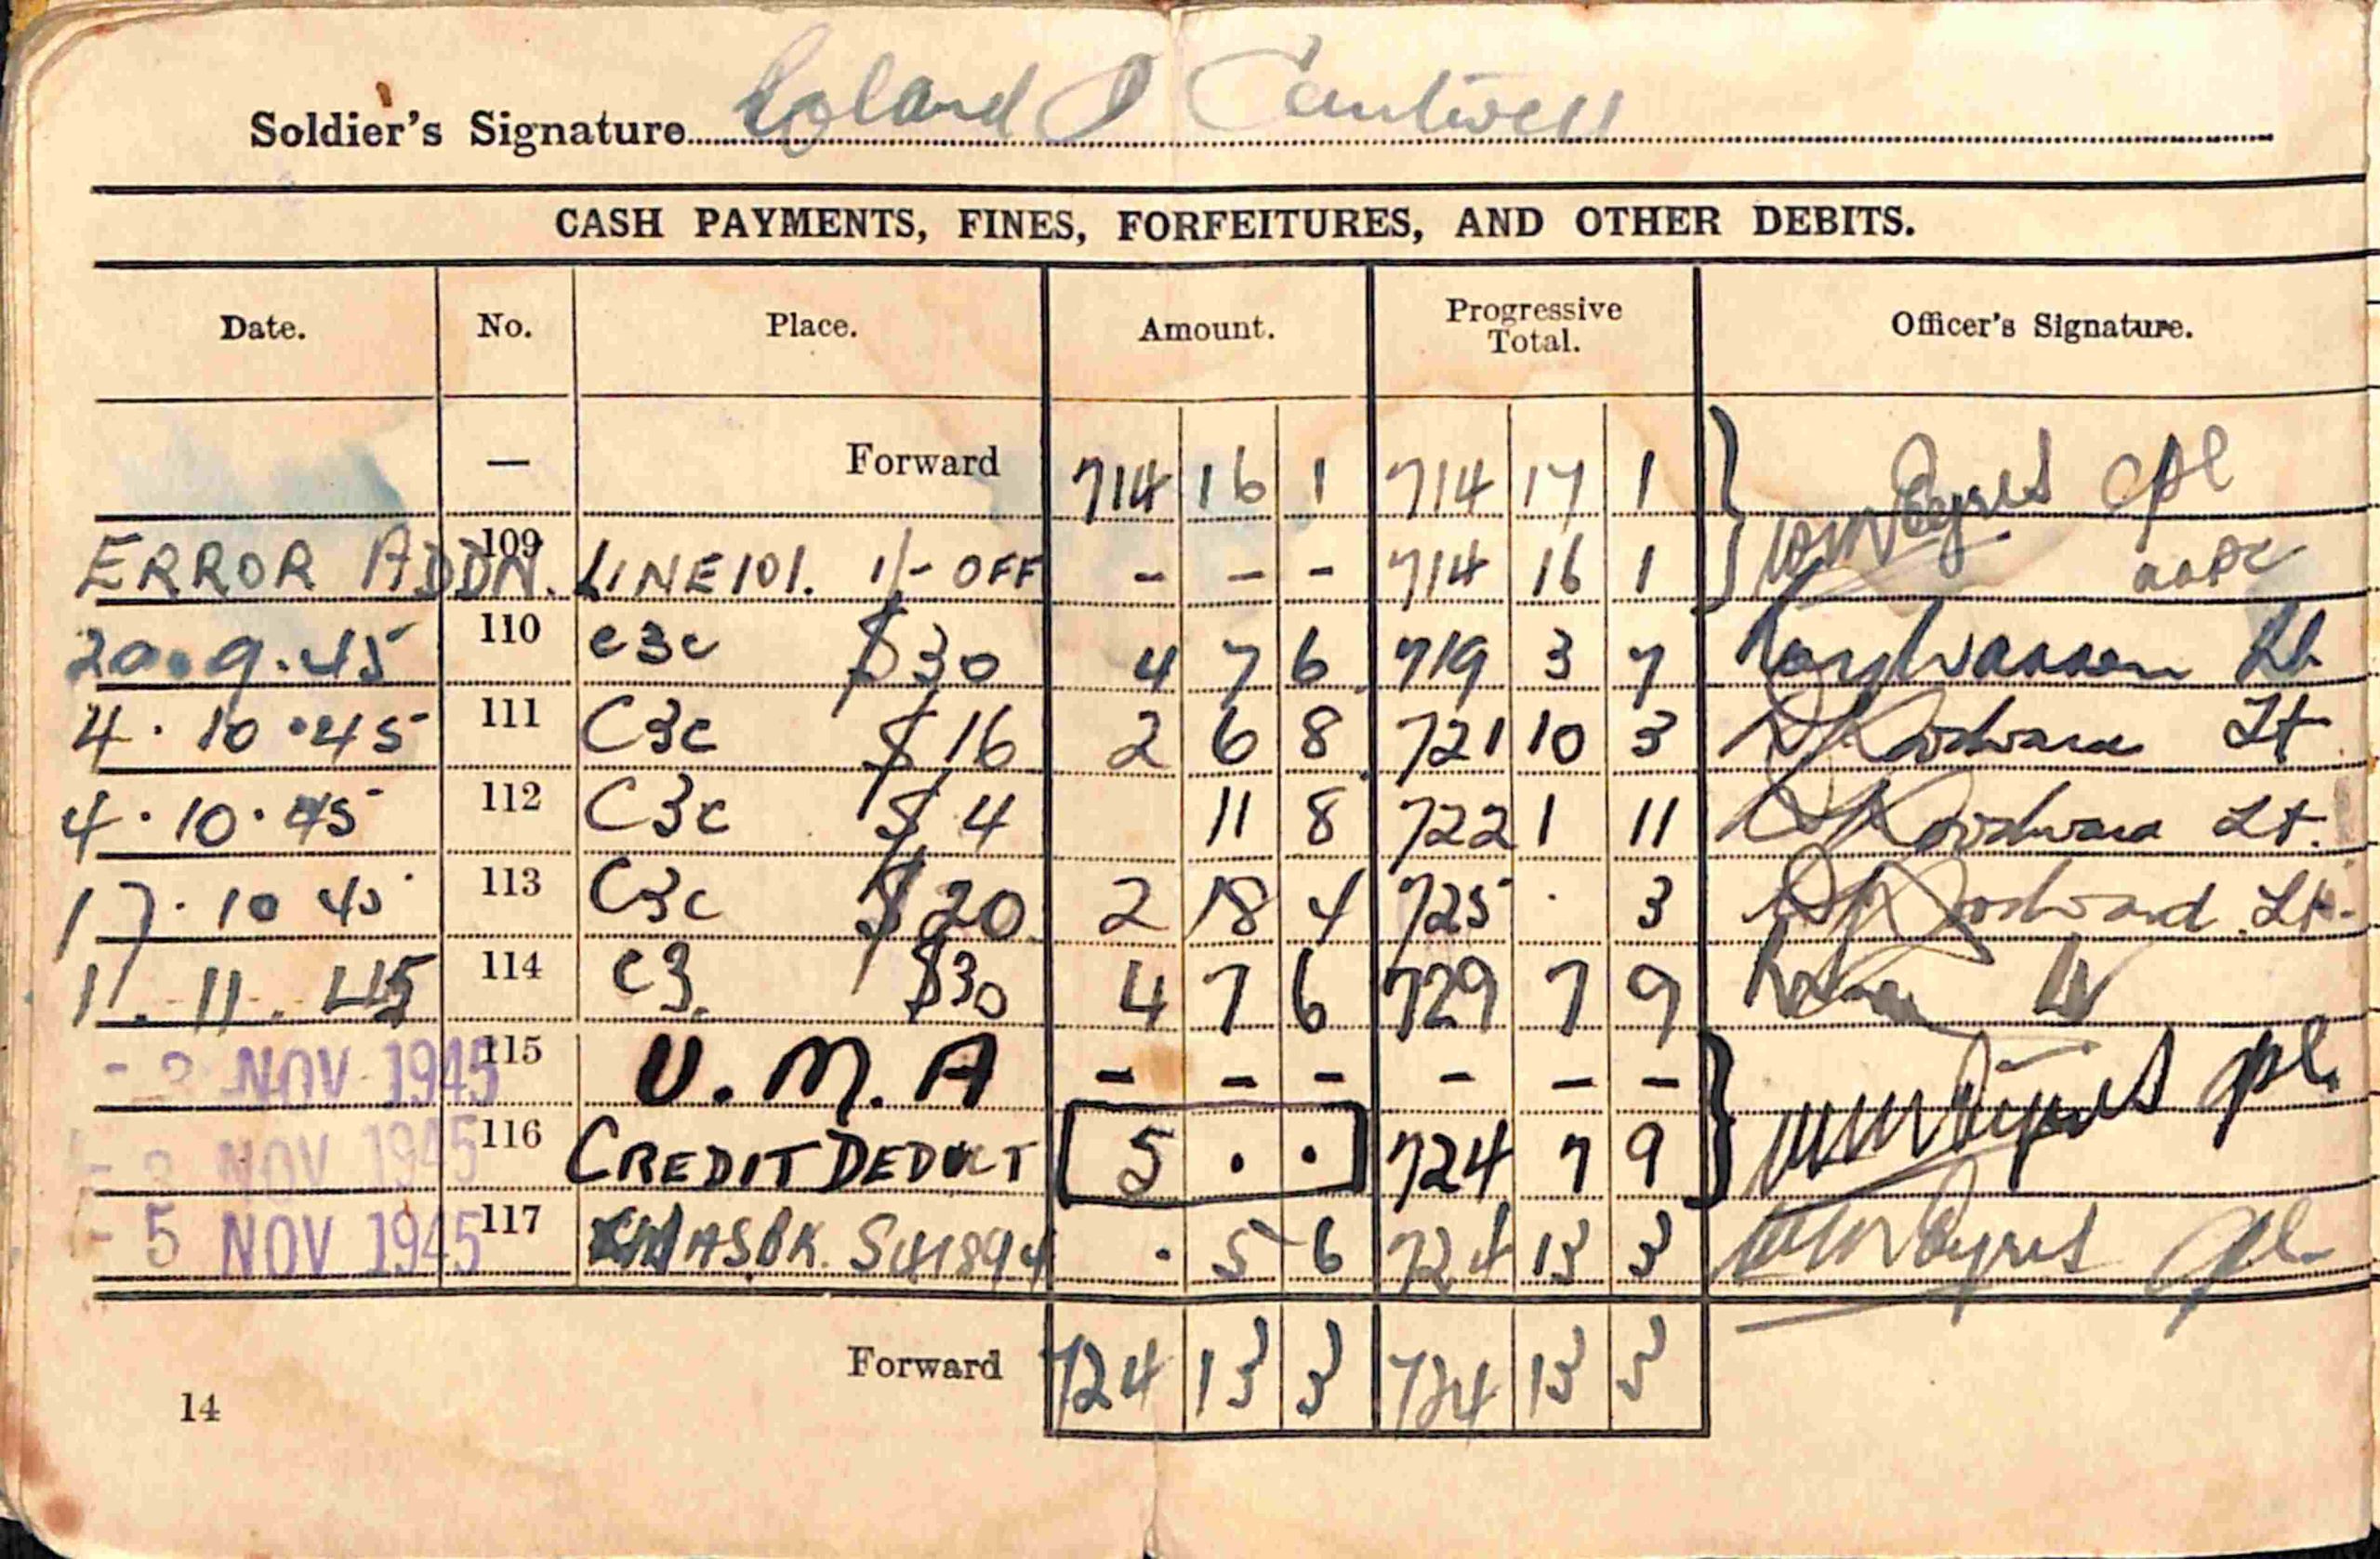 Soldier's Signature Roland J Cantwell
CASH PAYMENTS, FINES, FORFEITURES, AND OTHER DEBITS.
Date. No. Place. Amount. Progressive Total. Officer's Signature.
— Forward 714 16 1 714 17 1 Cpl
ERROR ADDN. 109 LINE 101. 1/- OFF - - - 714 16 1 AAPC
20.9.45 110 C3c $30 4 7 6 719 3 7 Lt.
4.10.45 111 C3c $16 2 6 8 721 10 3 Lt
4.10.45 112 C3c $4 11 8 722 1 11 Lt.
17.10 45 113 C3c $20 2 18 4 725 · 3 Lt.
11.11.45 114 C3. $30 4 7 6 729 7 9
- 3 NOV 1945 115 U.M.A - - - - - - Cpl.
- 3 NOV 1945 116 CREDIT DEDUCT 5 . . 724 7 9
- 5 NOV 1945 117 ASBK. S41894 . 5 6 724 13 3 Cpl
Forward 724 13 3 724 13 3
14